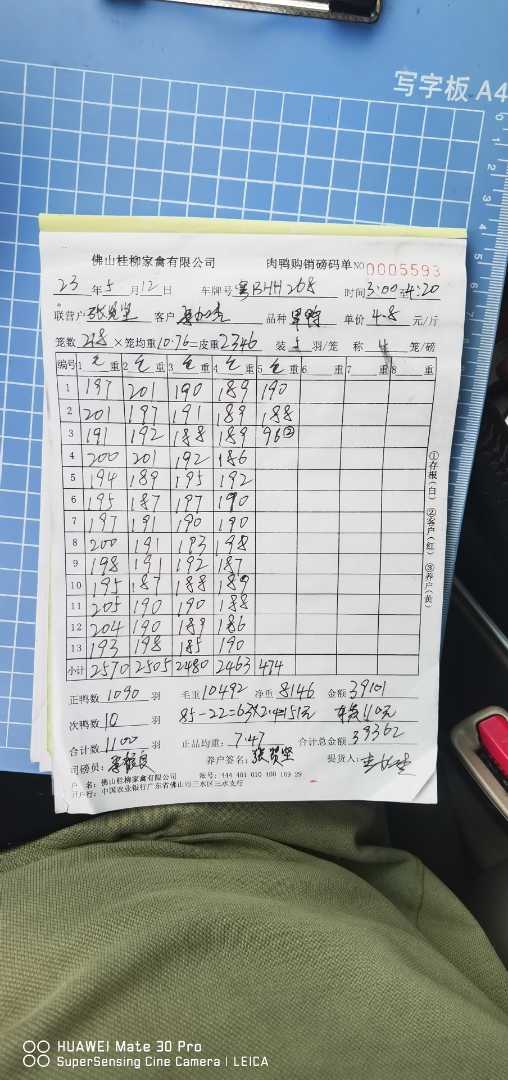 写字板 A4
佛山桂柳家禽有限公司 肉鸭购销磅码单 NO 0005593
23 年 5 月 12 日 车牌号 粤BHH268 时间 3:00至4:20
联营户 张贺坚 客户 品种 单价 4.8 元/斤
笼数 218 ×笼均重 10.76=皮重 2346 装 5 羽/笼 称 4 笼/磅
编号 1 毛 重 2 毛 重 3 毛 重 4 毛 重 5 毛 重 6 重 7 重 8 重
1 197 201 190 189 190
2 201 197 191 189 188
3 191 192 188 189 96②
4 200 201 192 186
5 194 189 195 192
6 195 187 197 190
7 197 191 190 190
8 200 191 193 198
9 198 191 192 187
10 195 187 188 189
11 205 190 190 188
12 204 190 189 186
13 193 198 185 190
小计 2570 2505 2480 2463 474
①存根(白) ②客户(红) ③养户(黄)
正鸭数 1090 羽 毛重 10492 净重 8146 金额 39101
次鸭数 10 羽 85-22=63×2.4=151元 110元
合计数 1100 羽 正品均重: 7.47 合计总金额 39362
司磅员: 养户签名: 张贺坚 提货人:
户 名: 佛山桂柳家禽有限公司 账号: 444 401 010 400 169 29
开户行: 中国农业银行广东省佛山市三水区三水支行
HUAWEI Mate 30 Pro
SuperSensing Cine Camera | LEICA